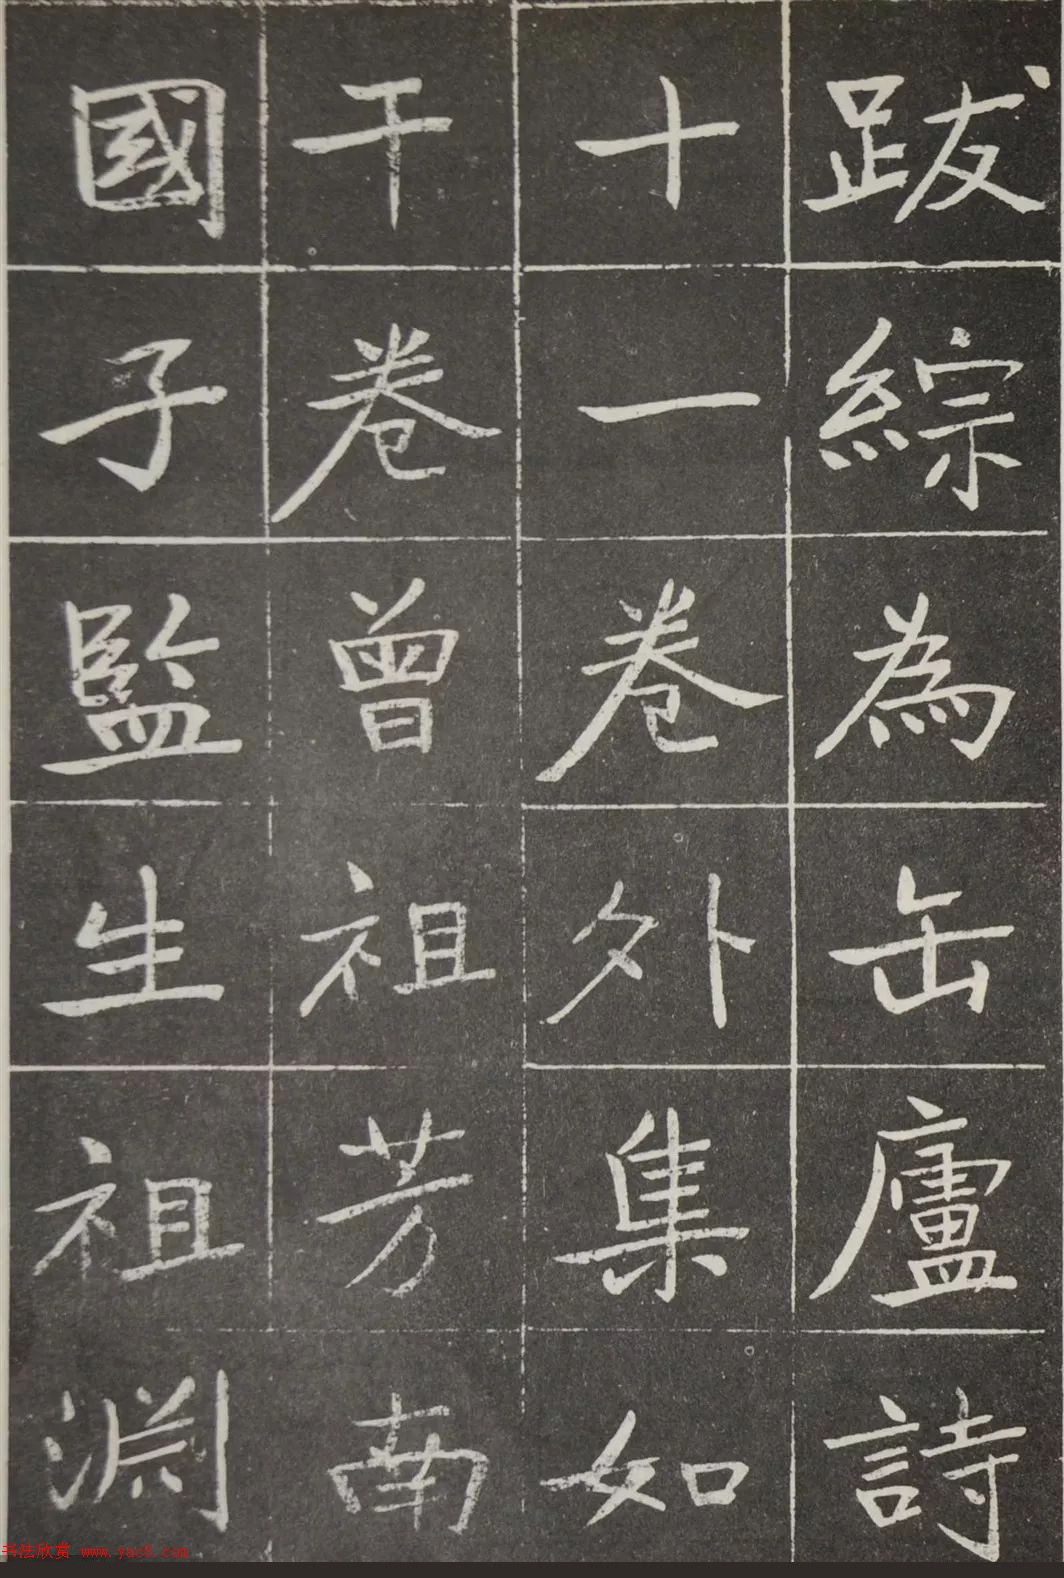 跋綜為缶廬詩
十一卷外集如
干卷曾祖芳南
國子監生祖淵
书法欣赏 www.yac8.com